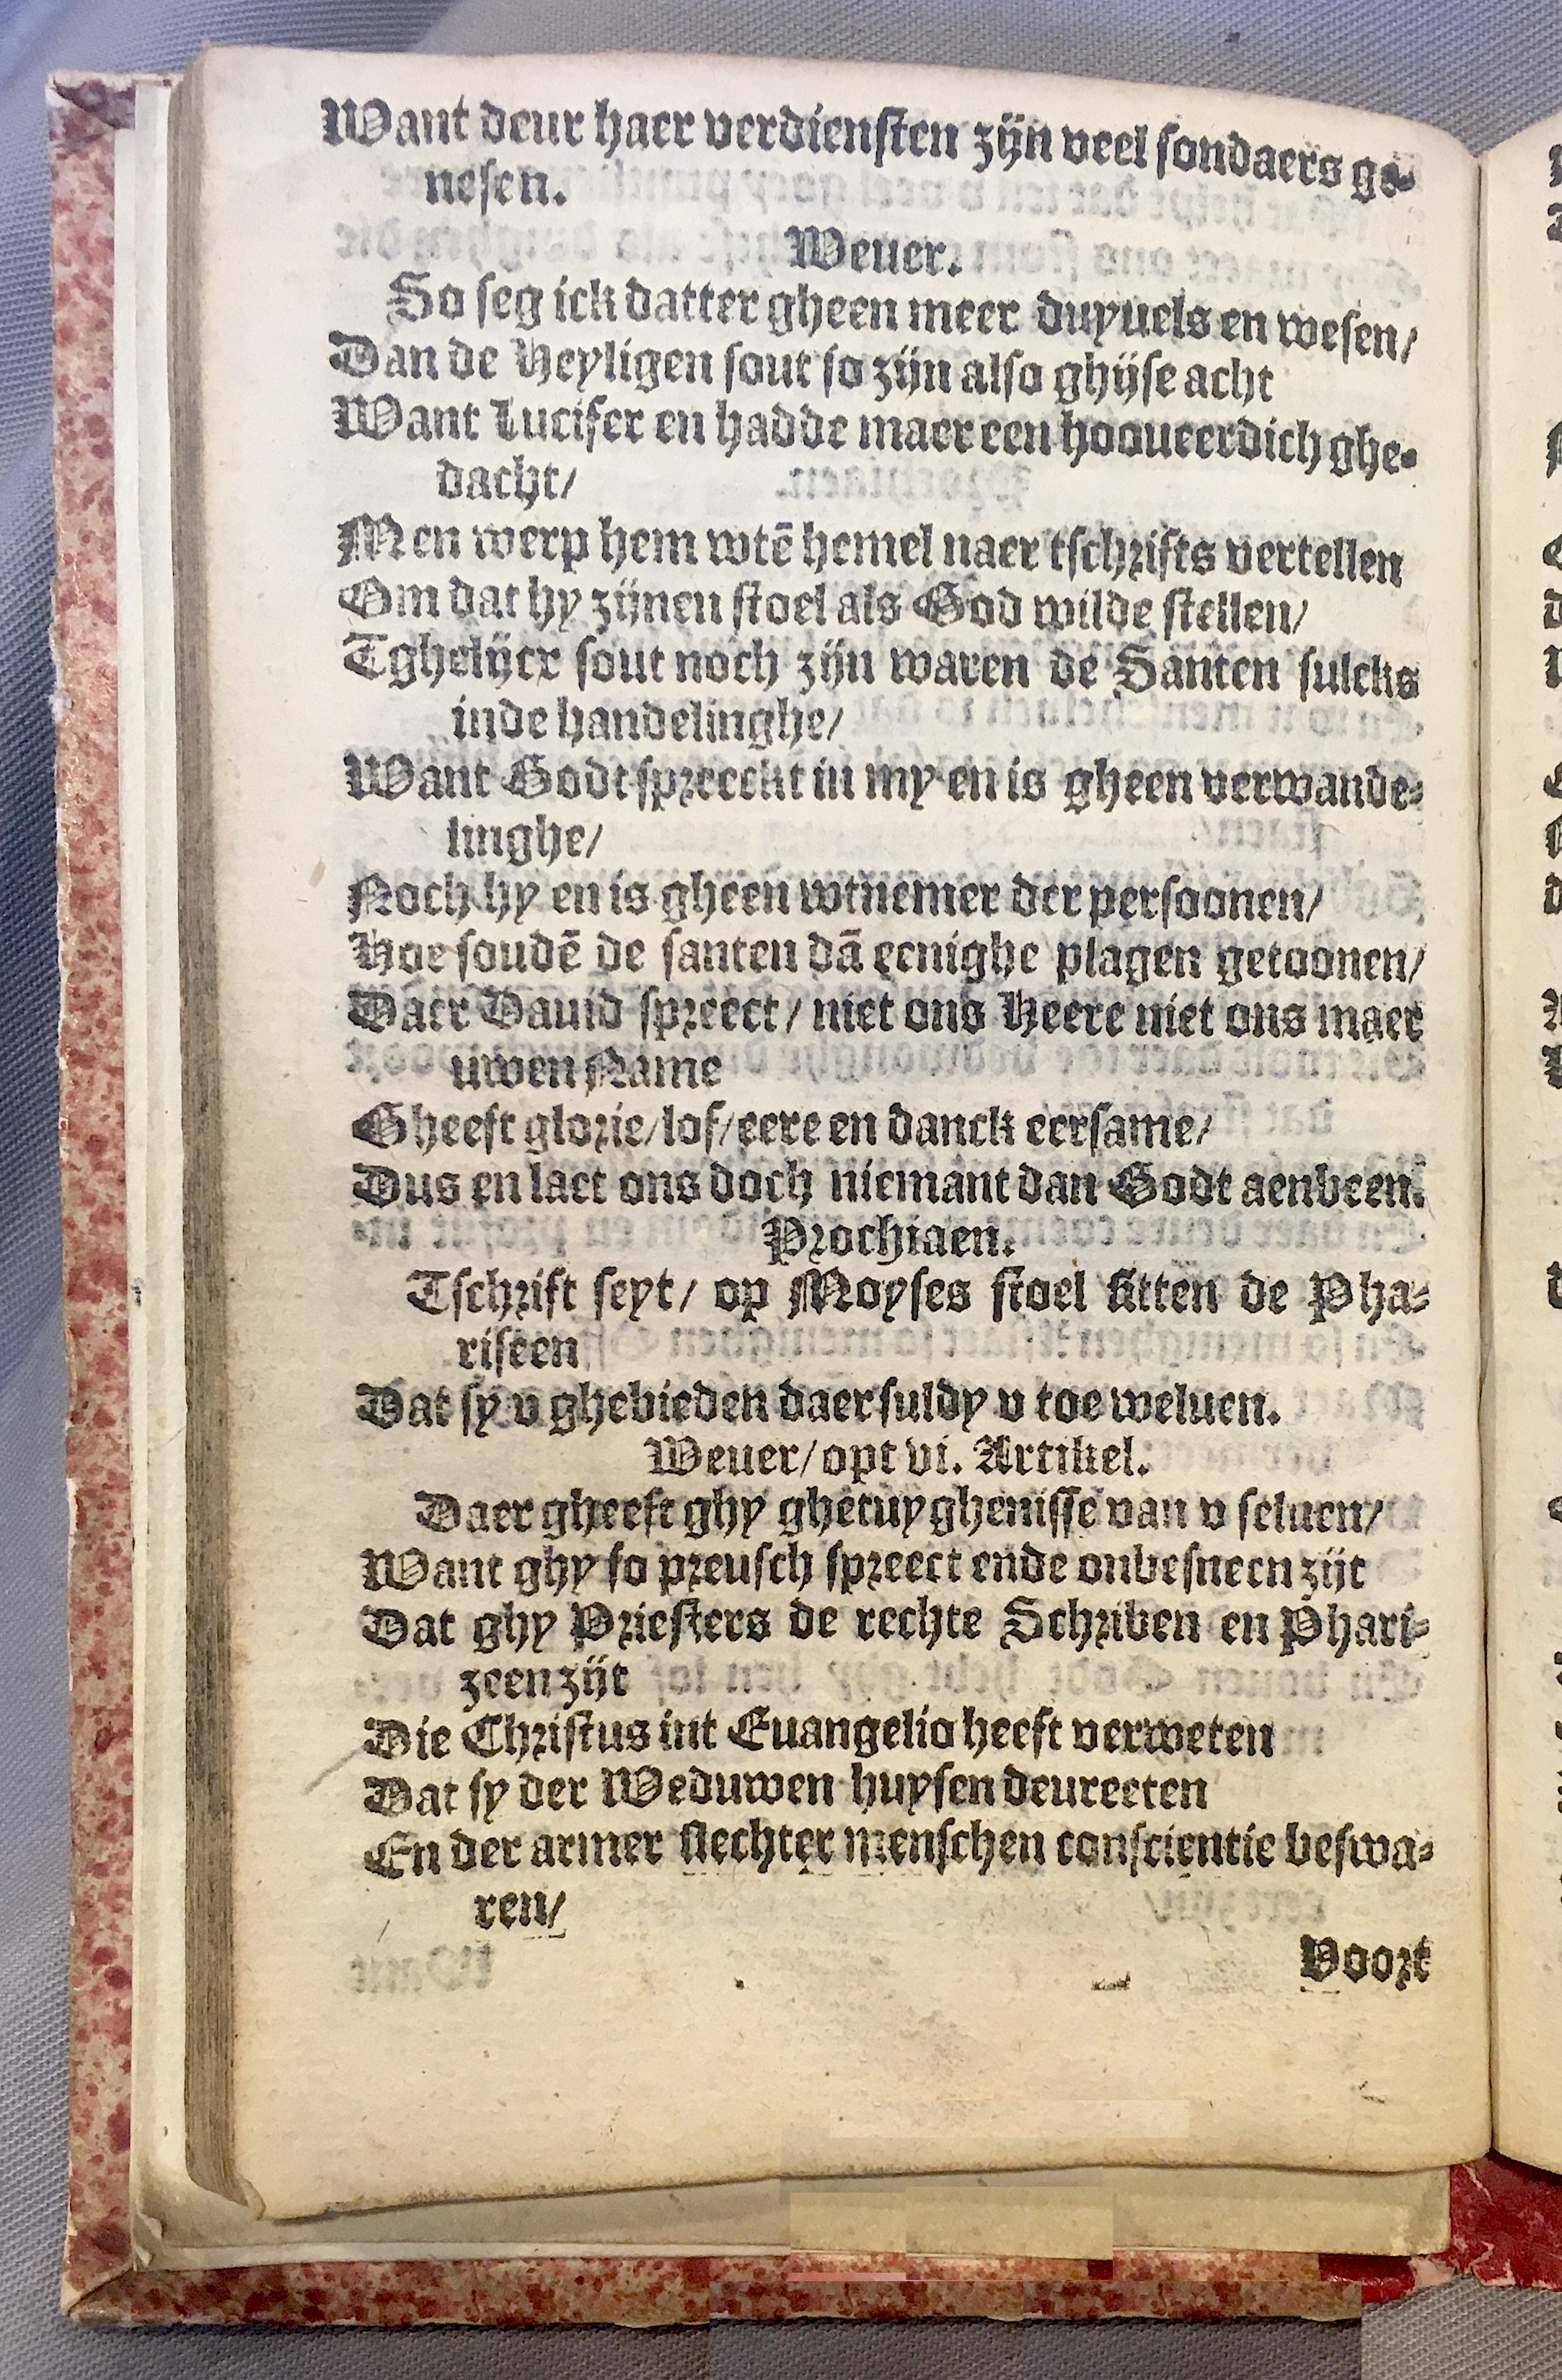 Want deur haer verdiensten zijn veel sondaers ge-
nesen.
Weuer.
So seg ick datter gheen meer duyuels en wesen/
Dan de Heyligen sout so zijn also ghijse acht
Want Lucifer en hadde maer een hooueerdich ghe-
dacht/
Men werp hem wtē hemel naer tschrifts vertellen
Om dat hy zijnen stoel als God wilde stellen/
Tghelijcx sout noch zijn waren de Santen sulcks
inde handelinghe/
Want Godt spreeckt in my en is gheen verwande-
linghe/
Noch hy en is gheen wtnemer der persoonen/
Hoe soudē de santen dā eenighe plagen getoonen/
Daer Dauid spreect/ niet ons Heere niet ons maer
uwen Name
Gheeft glorie/lof/eere en danck eersame/
Dus en laet ons doch niemant dan Godt aenbeen.
Prochiaen.
Tschrift seyt/ op Moyses stoel sitten de Pha-
riseen
Dat sy v ghebieden daer suldy v toe weluen.
Weuer/opt vi. Artikel.
Daer gheeft ghy ghetuyghenisse van v seluen/
Want ghy so preusch spreect ende onbesneen zijt
Dat ghy Priesters de rechte Schriben en Phari-
zeen zijt
Die Christus int Euangelio heeft verweten
Dat sy der Weduwen huysen deureeten
En der armer slechter menschen conscientie beswa-
ren/
Voort